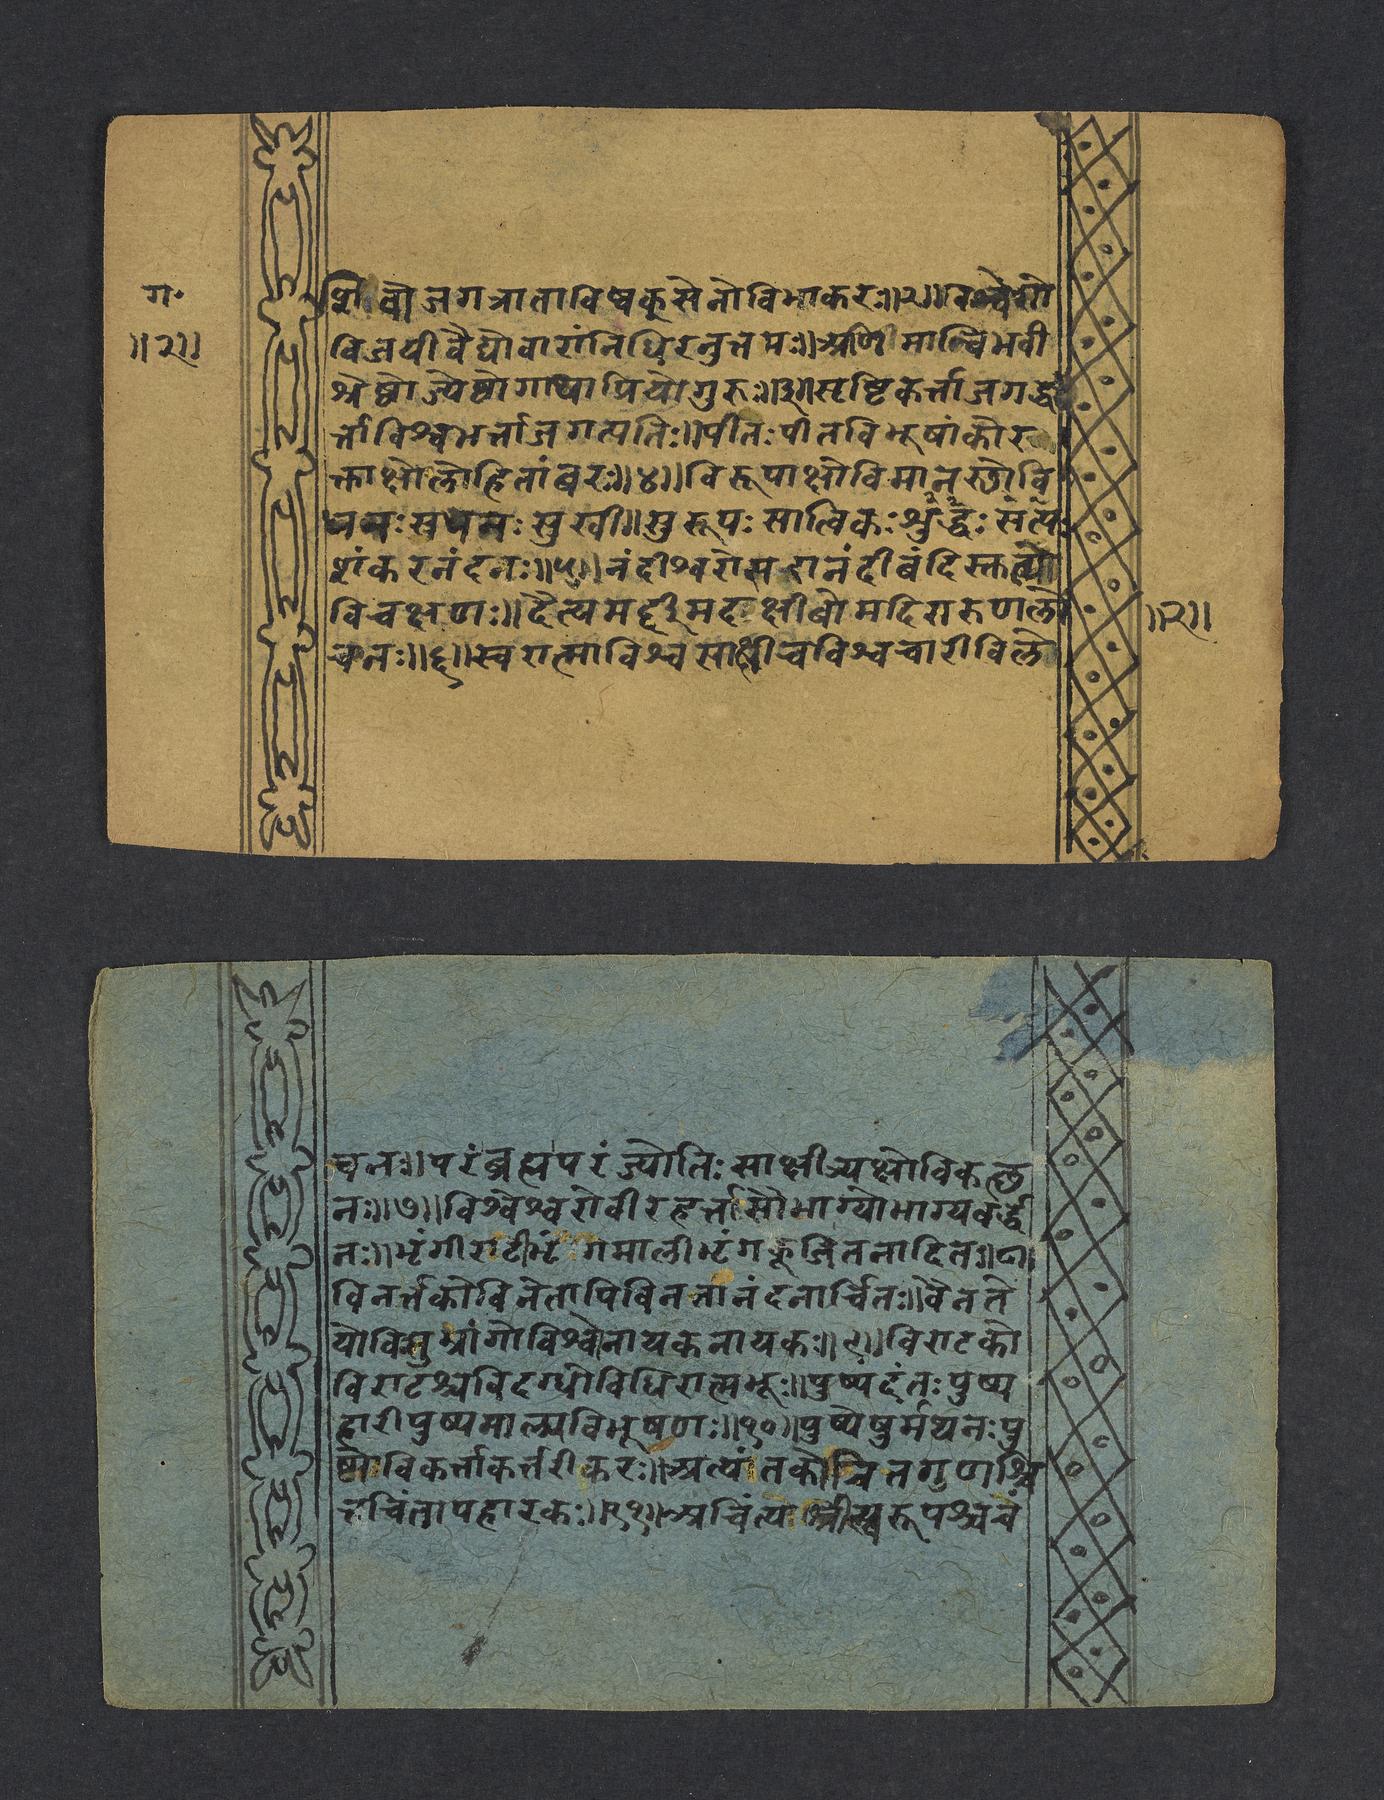 ग॰
॥२॥
शिवो जगत्राताविष्वकसेनोविभाकरः॥२॥विश्वेशो
विजयीवैद्योवारांनिधिरनुत्तमः॥अणिमान्विभवी
श्रेष्ठोज्येष्ठोगाथाप्रियोगुरुः॥३॥सृष्टिकर्त्ताजगद्ध
र्त्ताविश्वभर्त्ताजगत्पतिः॥पीतःपीतविभूषांकोर
क्ताक्षोलोहितांबरः॥४॥विरूपाक्षोविमान वि
सुखी॥सुरूपः सात्विकः
शंकरनंदनः॥५॥नंदीश्वरो नंदी
विचक्षणः॥दैत्य मदक्षीबोमदिरारुणलो
चनः॥६॥स्वरात्माविश्वसाक्षीचविश्वचारीविलो
॥२॥
चनः॥परंब्रह्मपरंज्योतिःसाक्षीत्र्यक्षोविकत्थ
नः॥७॥विश्वेश्वरोवीरहर्त्तासौभाग्योभाग्यवर्द्ध
नः॥भृंगीरटीभृंगमालीभृंगकूजितनादितः॥८॥
विनर्त्तकोविनेतापिविनतानंदनार्चितः॥वैनते
यो विश्वनायकनायकः॥९॥विराटको
विराटश्चविदग्धोविधिरात्मभूः॥पुष्पदंतःपुष्प
हारीपुष्पमाल्यविभूषणः॥१०॥पुष्पेषुर्मथनःपु
ष्टोविकर्त्ताकर्त्तरीकरः॥अत्यं
चिंतापहारकः॥११॥अचिंत्य